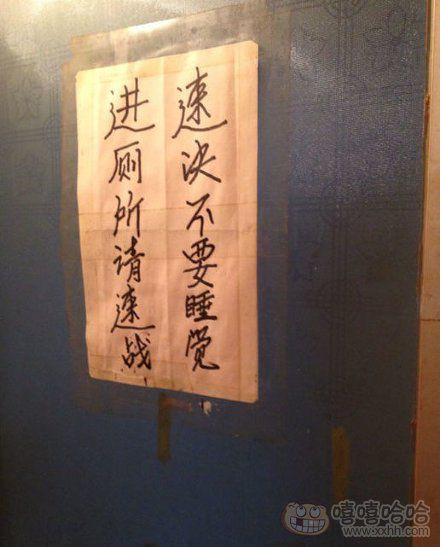 进厕所请速战
速决不要睡觉
嘻嘻哈哈
www.xxhh.com